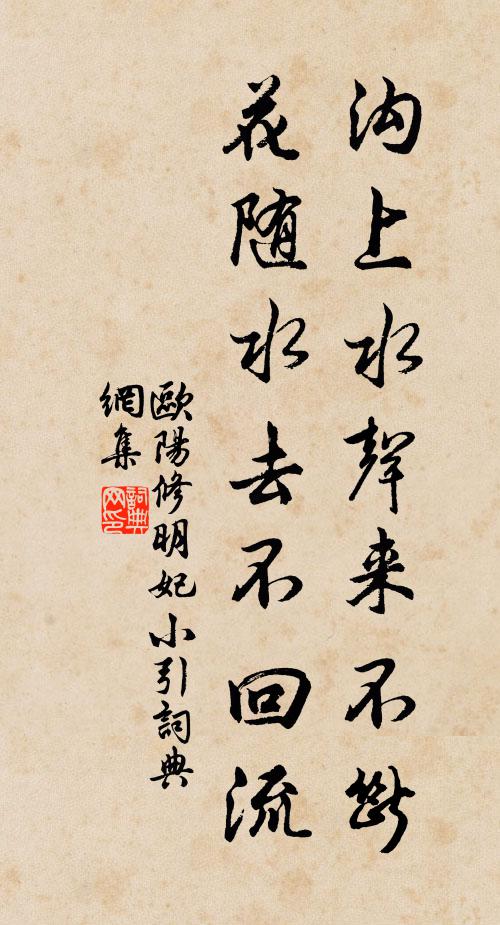 沟上水聲来不斷
花随水去不回流
歐陽修明妃小引詞典
網集
詞典网印